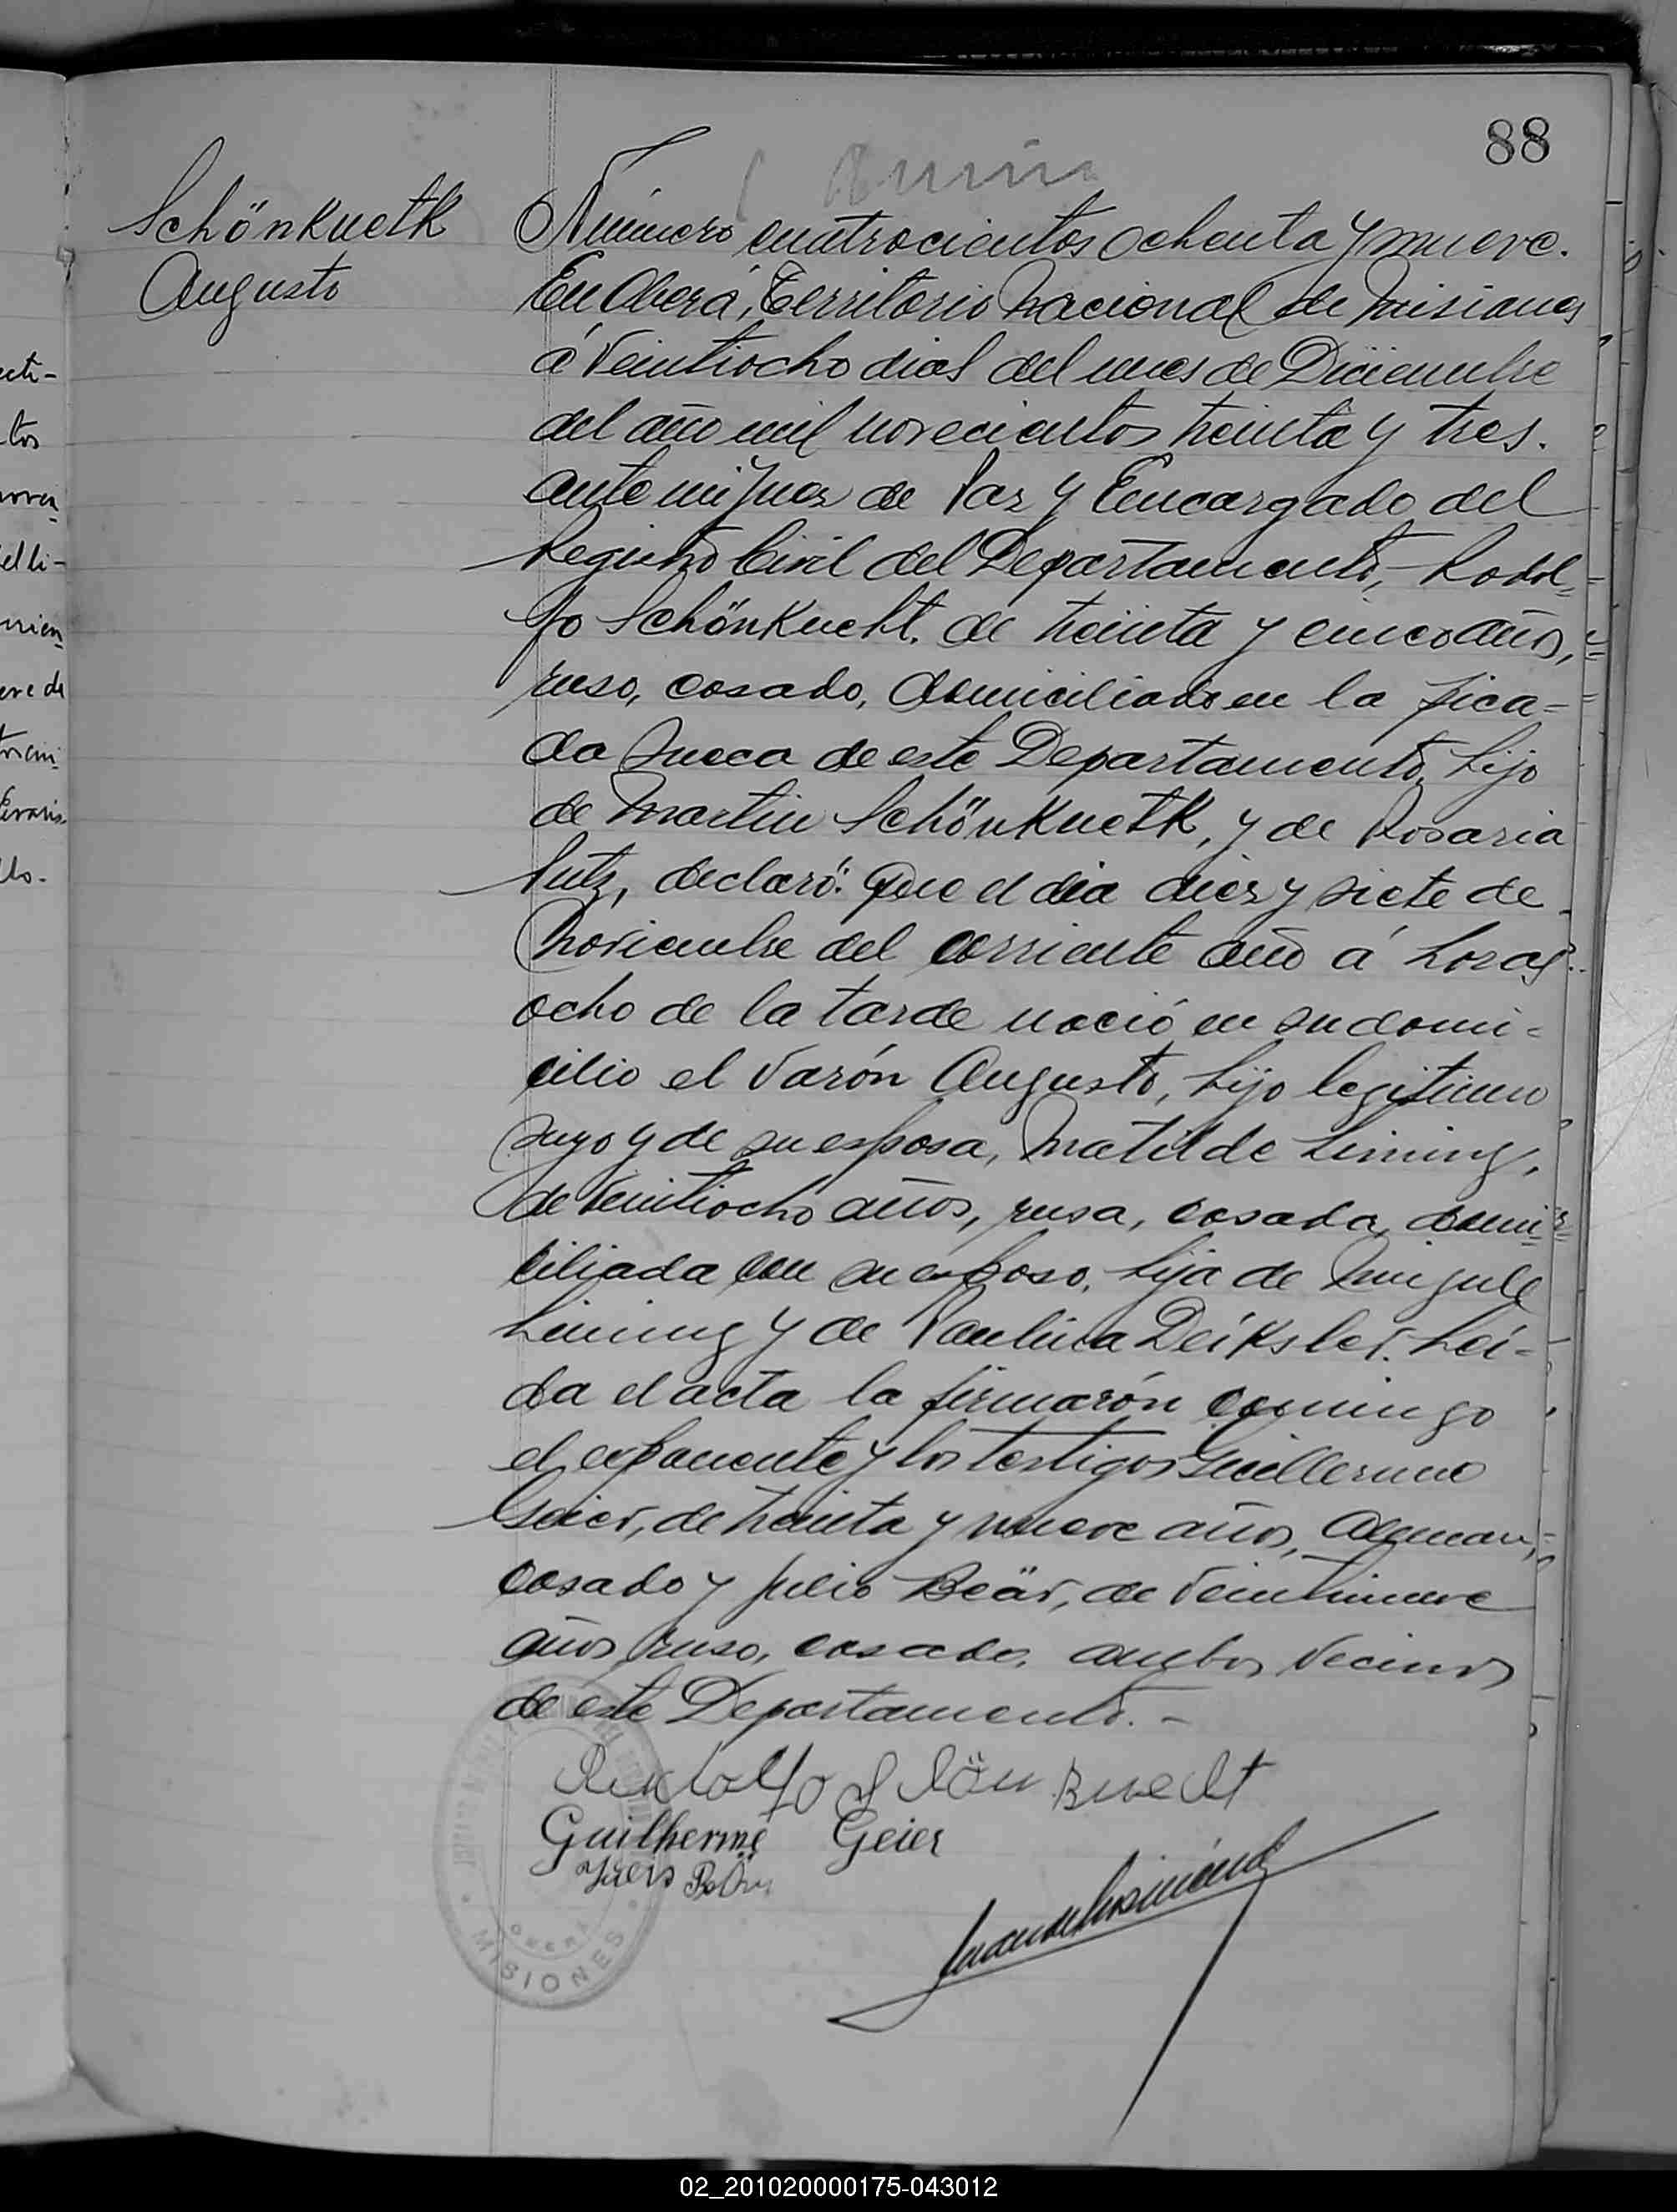 88
Schönknetk
Augusto
Número cuatrocientos ochenta y nueve.
En Oberá, Territorio Nacional de Misiones
á veintiocho dias del mes de Diciembre
del año mil novecientos treinta y tres.
ante mi Juez de Paz y Encargado del
Registro Civil del Departamento, Rodol-
fo Schönknecht, de treinta y cinco años,
ruso, casado, domiciliado en la pica-
da Sueca de este Departamento, hijo
de Martin Schönknetk, y de Rosaria
Lutz, declaró: Que el dia diez y siete de
Noviembre del corriente año á horas
ocho de la tarde nació en su domi-
cilio el varón Augusto, hijo legitimo
suyo y de su esposa, Matilde Liming,
de veintiocho años, rusa, casada, domi-
ciliada con su esposo, hija de Miguel
Liming y de Paulina Deiksler. Lei-
da el acta la firmarón conmigo
el exponente y los testigos Guillermo
Geier, de treinta y nueve años, Aleman,
casado y Julio Beär, de veintinueve
años, ruso, casado, ambos vecinos
de este Departamento.-
Rudolfo Schönknecht
Guilherme Geier
MISIONES
02_201020000175-043012